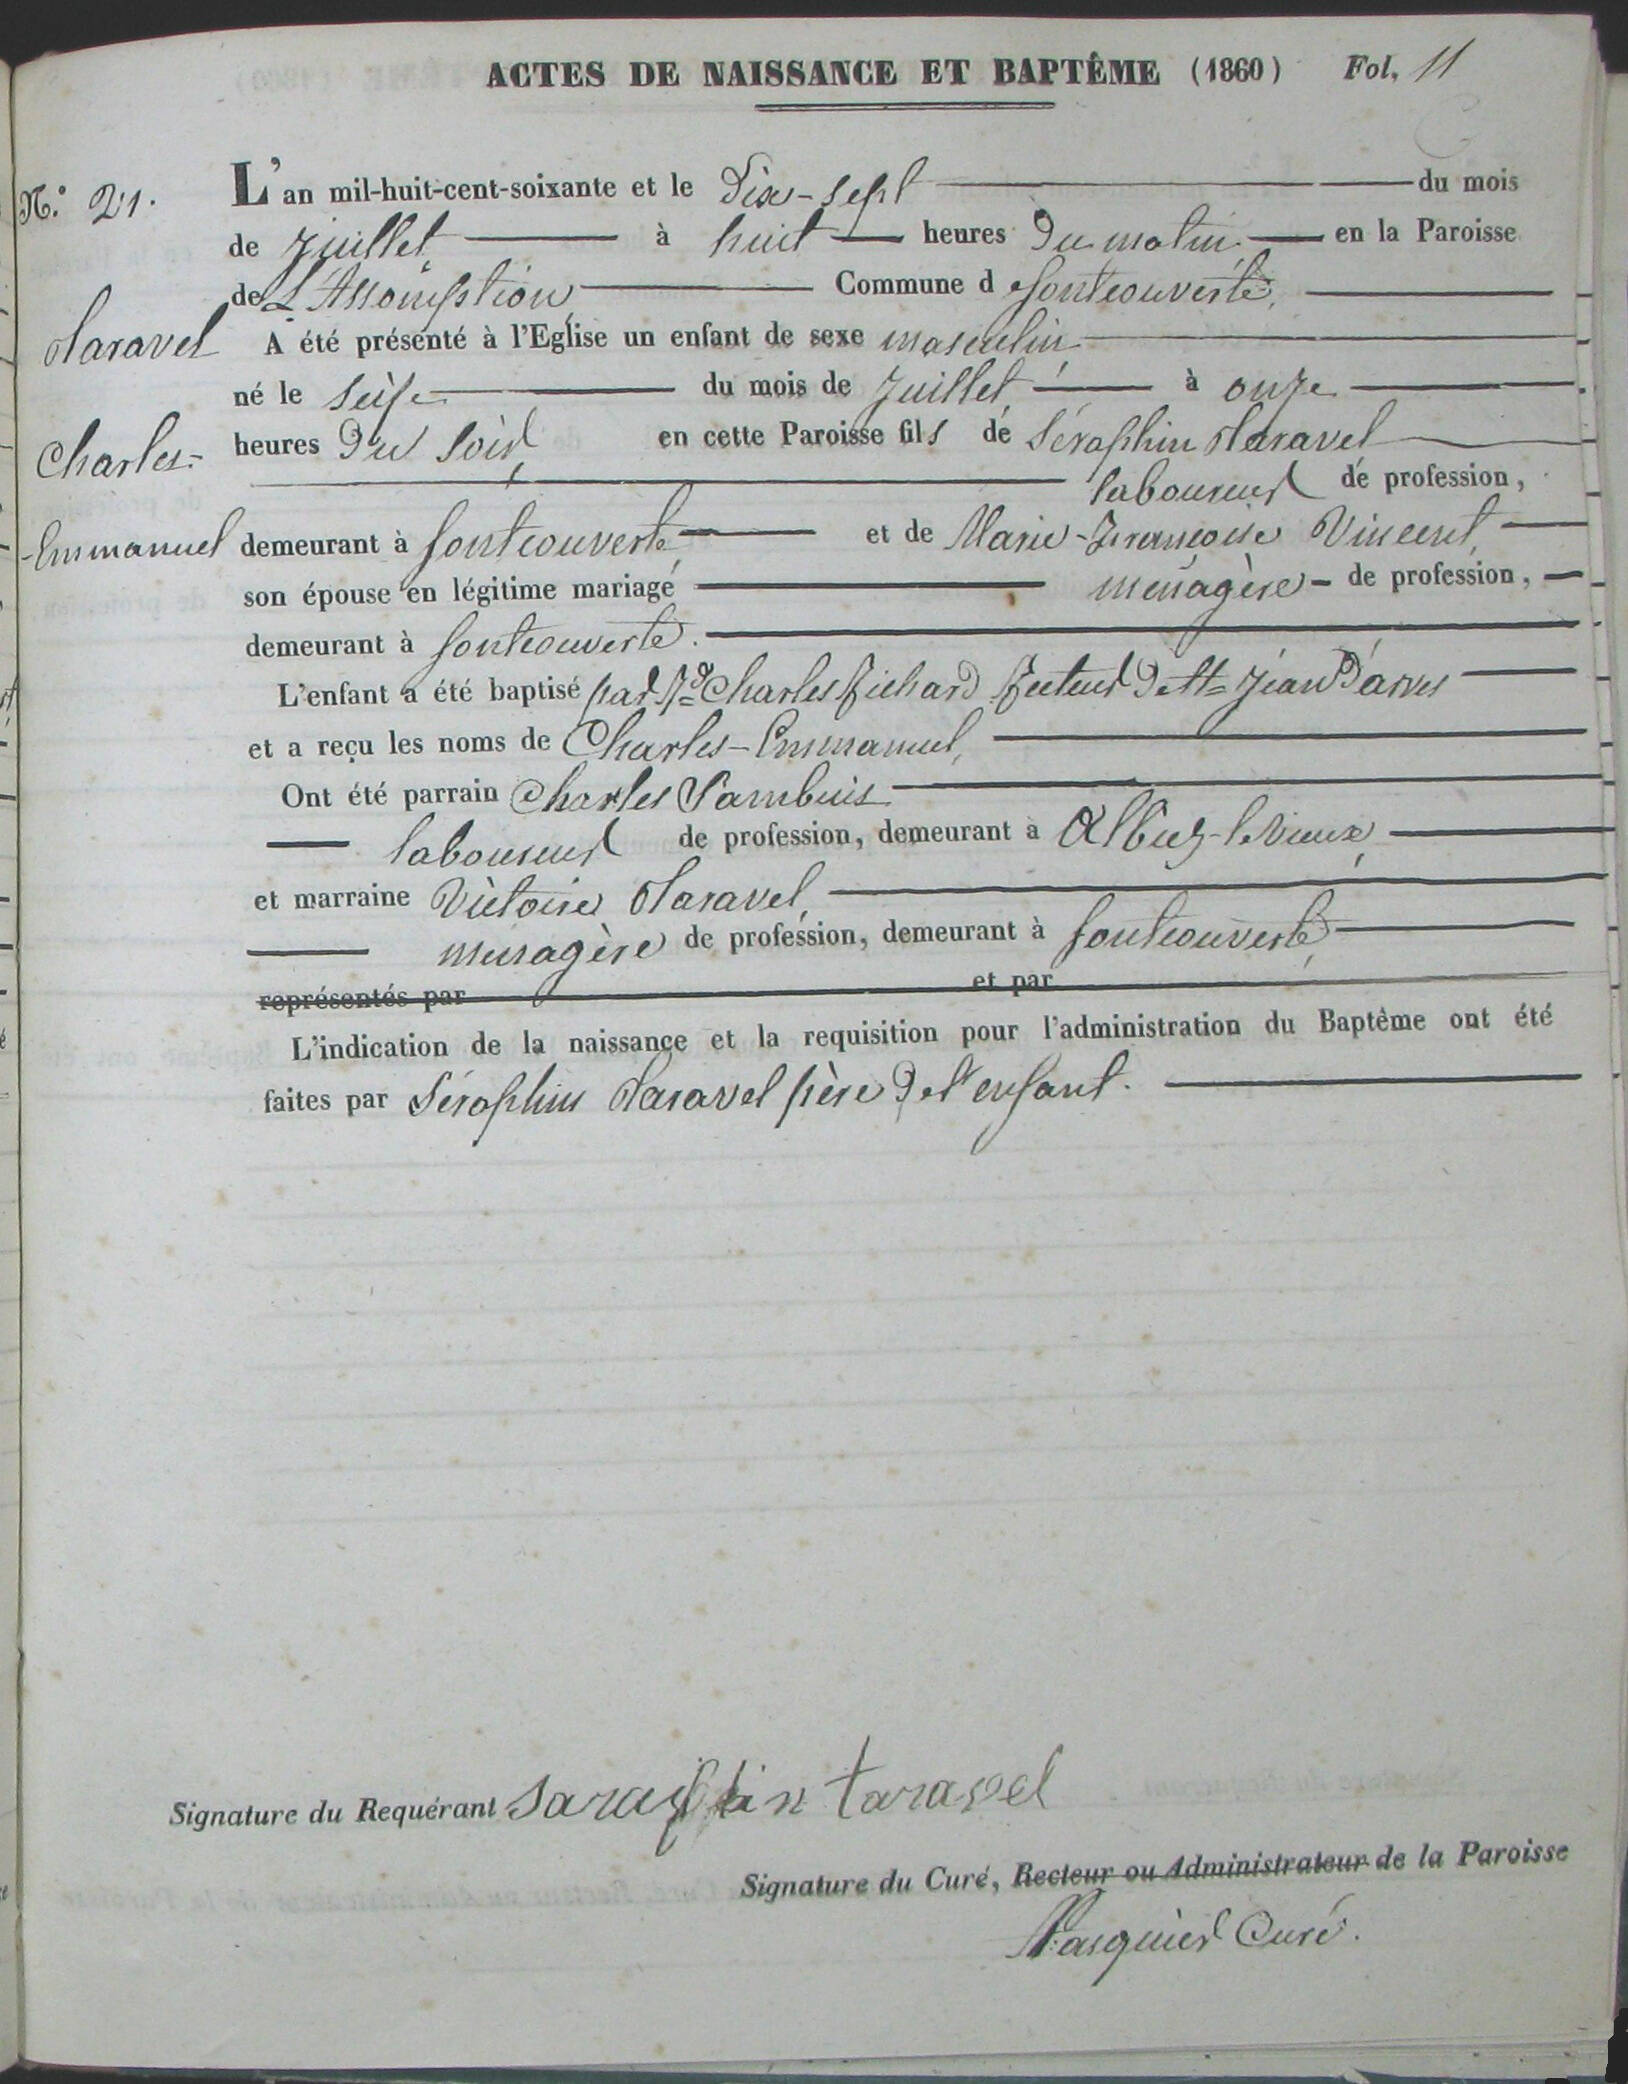 ACTES DE NAISSANCE ET BAPTÊME (1860) Fol, 11
N.° 21.
L'an mil-huit-cent-soixante et le Dix-sept du mois
de Juillet à huit heures Du matin en la Paroisse
de L'Assomption Commune d fontcouverte,
Taravel
A été présenté à l'Eglise un enfant de sexe masculin
né le seize du mois de Juillet à onze
Charles-
heures Du Soir en cette Paroisse fils de Séraphin Taravel
laboureur de profession,
Emmanuel
demeurant à fontcouverte et de Marie-Françoise Vincent,
son épouse en légitime mariage ménagère - de profession,
demeurant à fontcouverte.
L'enfant a été baptisé par Rd Charles Richard Recteur De St= Jean D'arves
et a reçu les noms de Charles-Emmanuel,
Ont été parrain Charles Sambuis
laboureur de profession, demeurant à Albiez-le Vieux,
et marraine Victoire Taravel,
ménagère de profession, demeurant à fontcouverte,
représentés par et par
L'indication de la naissance et la requisition pour l'administration du Baptême ont été
faites par Séraphin Taravel père De l'enfant.
Signature du Requérant saraphin taravel
Signature du Curé, Recteur ou Administrateur de la Paroisse
Pasquier Curé.